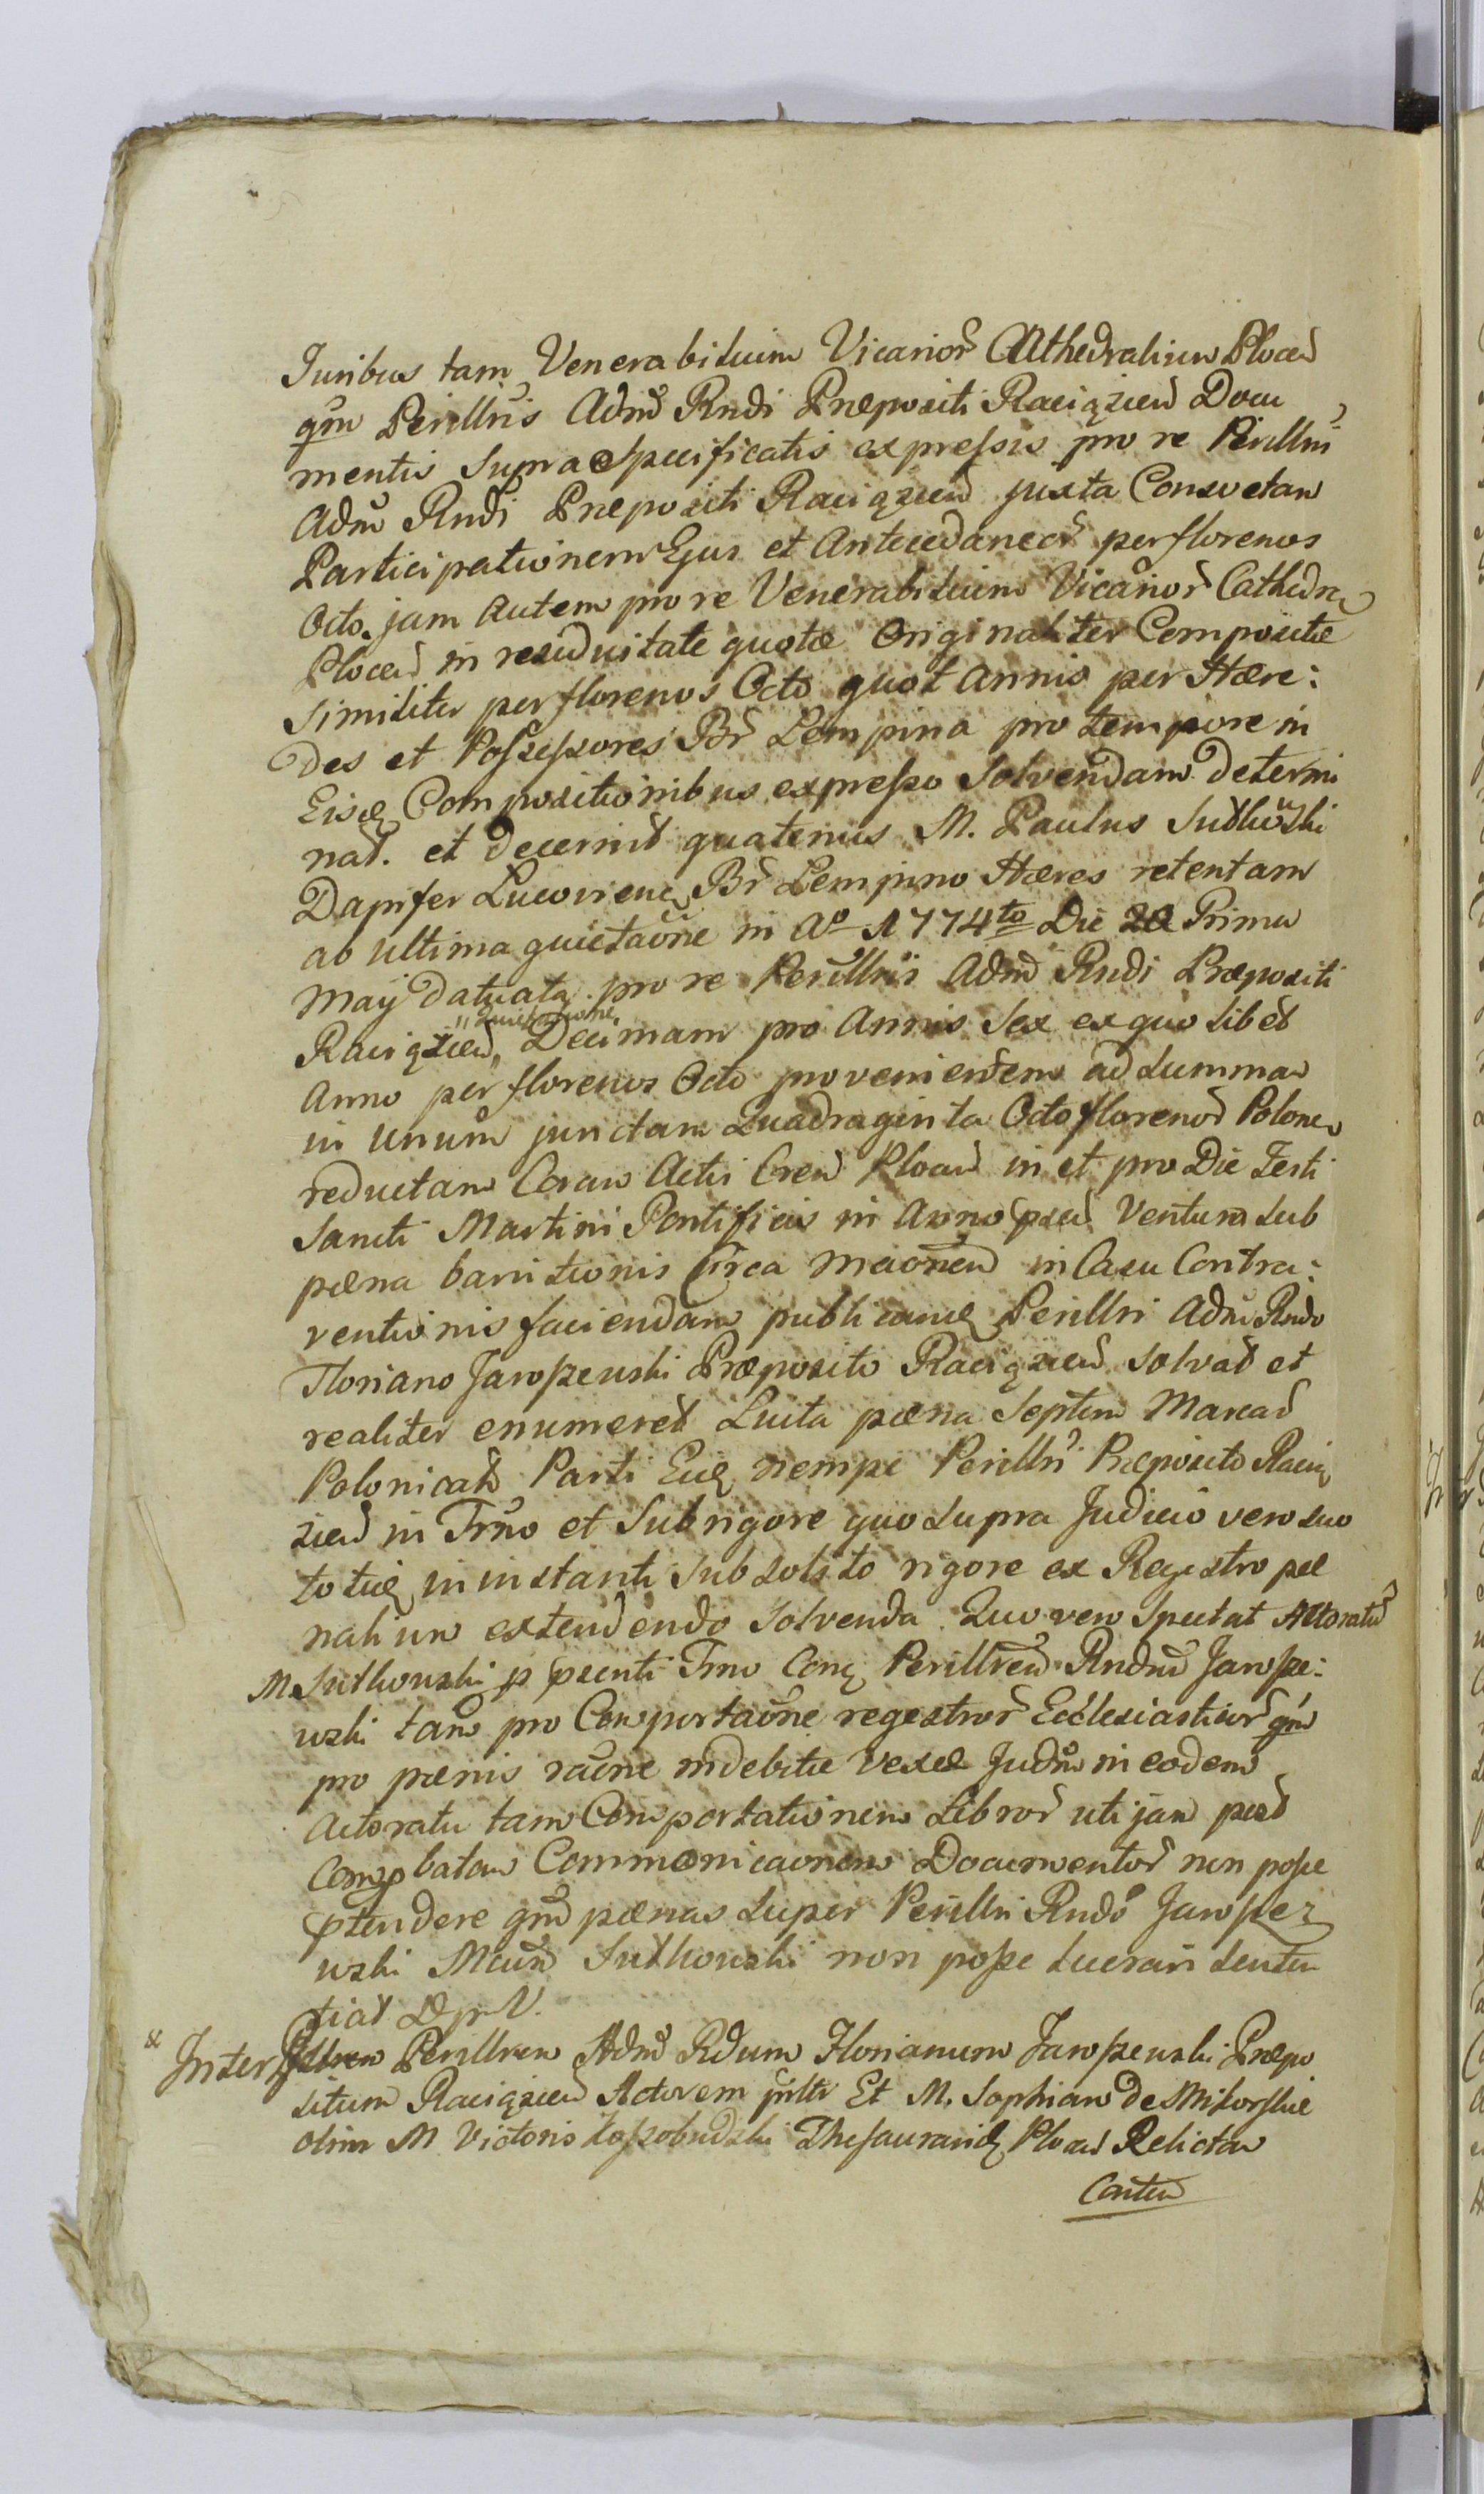 Juribus tam Venerabilium Vicarior Cathedralium Plocen
qm Perillris Adm Rndi Præpositi Raciązien Docu
mentis Supra Specificatis expressis pro re Perillris
Adm Rndi Præpositi Raciązien juxta Consvetam
Participationem Ejus et Antecedaneor per florenos
Octo. jam autem pro re Venerabilium Vicarior Cathedra
Plocen in residuitate quotæ Originaliter Compositæ
Similiter per florenos Octo quot Annis per Hære:
des et Possessores Br Lempina pro tempore in
Eisq Compositionibus expresso Solvendam determi
nat. et decernit quatenus M. Paulus Sutkowski
Dapifer Br Lempino Hæres retentam
ab ultima quietaōne in Ao 1774to Die Prima
May Datuata pro re Perillris Adm Rndi Præpositi
Raciązien „quietatione„ Decimam pro Annis Sex ex quo libet
Anno per florenos Octo provenientem ad Summam
in unum junctam Quadraginta Octo florenor Polone
reductam Coram Actis Cren Plocen in et pro Die Festi
Sancti Martini Pontificis in Anno pnti Venturo Sub
pæna banitionis Circa in Casu Contra:
ventionis faciendam publicanq Perillri Adm Rndo
Floriano Jaroszewski Præposito Raciązien Solvat et
realiter enumeret Luita pæna Septem Marcar
Polonical Parti Eidq nempe Perillri Præposito Racią
zien in Trno et Sub rigore quo Supra Judicio vero suo
totiq in instanti Sub Solito rigore ex Registro pæ
nalium extendendo Solvenda. Quo vero Spectat Actoratum
M. Sutkowski p psenti Trno Conq Perillrem Rndum Jarosze:
wski tam pro Comportaōne regestror Ecclesiasticor qm
pro pænis raōne indebitæ vexæ Judm in eodem
Actoratu tam Comportationem Libror uti jam
Compbatam Commonicaonem Documentor non posse
ptendere qm pænas Super Perillri Rndo Jarosze
wski Mcum Sutkowski non posse lucrari Senten
tiat D p V.
Inter Perillrem Adm Rdum Florianum Jaroszewski Præpo
situm Raciązien Actorem Et M. Sophiam de Mikorskie
olim M Victoris Kossobudzki Thesaurarid Plocen Relictam
Conten